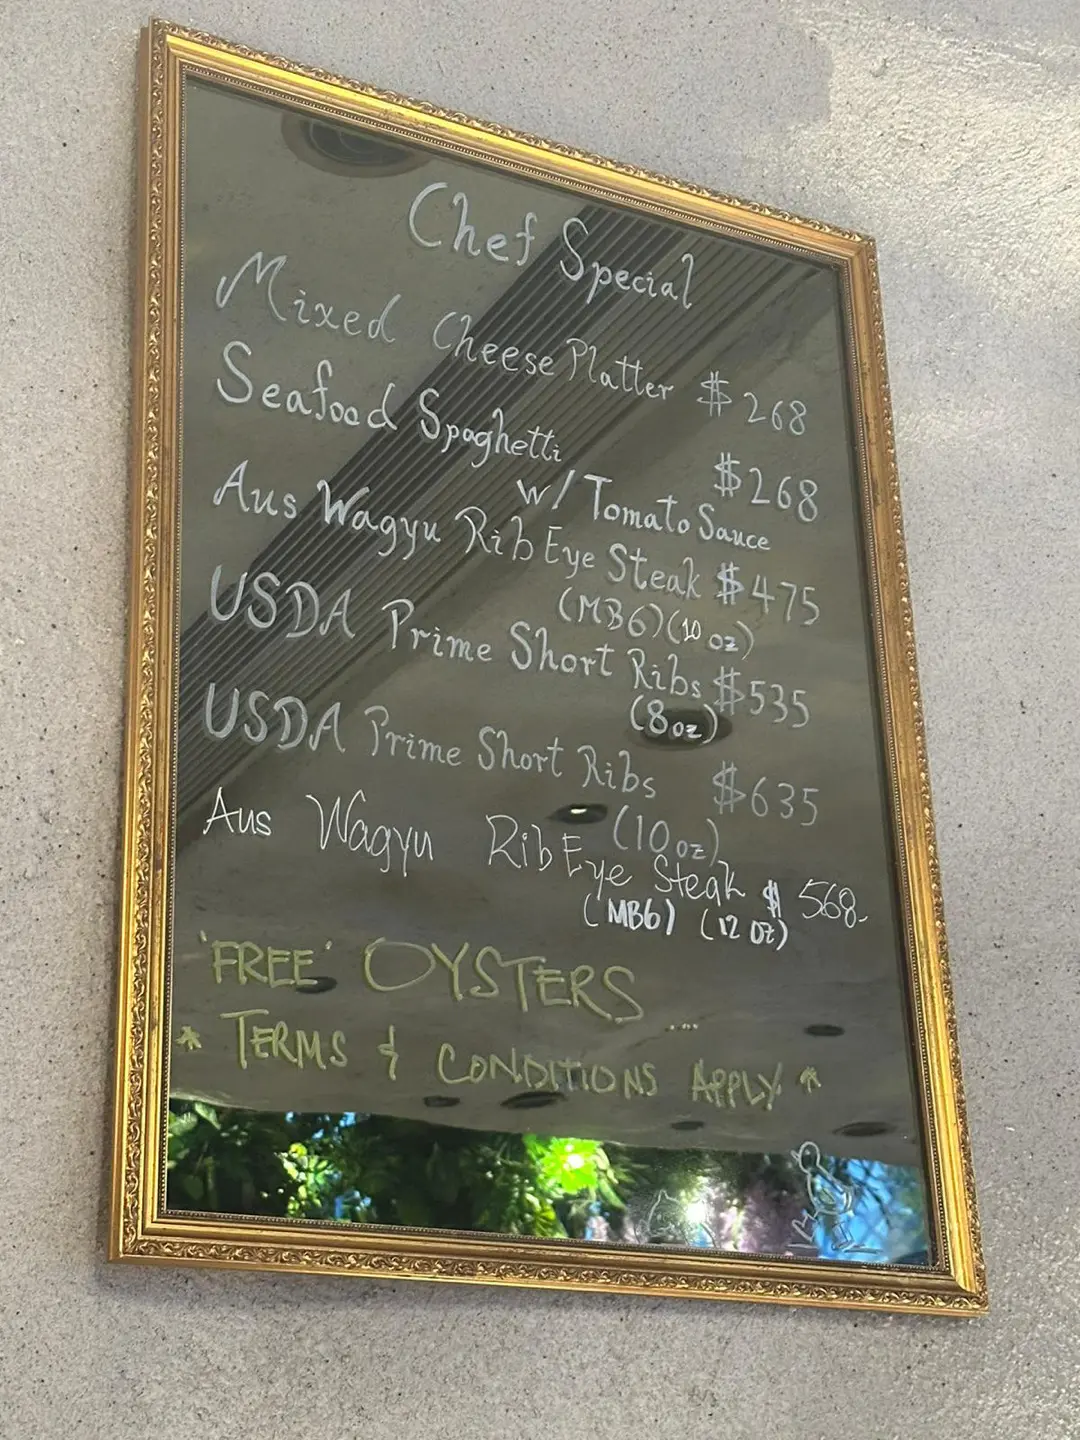 Chef Special
Mixed Cheese Platter $268
Seafood Spaghetti
w/Tomato Sauce $268
Aus Wagyu Rib Eye Steak $475
(MB6)(10 oz)
USDA Prime Short Ribs $535
(8 oz)
USDA Prime Short Ribs $635
(10 oz)
Aus Wagyu Rib Eye Steak $568-
(MB6) (12 OZ)
'FREE' OYSTERS ....
* TERMS & CONDITIONS APPLY *